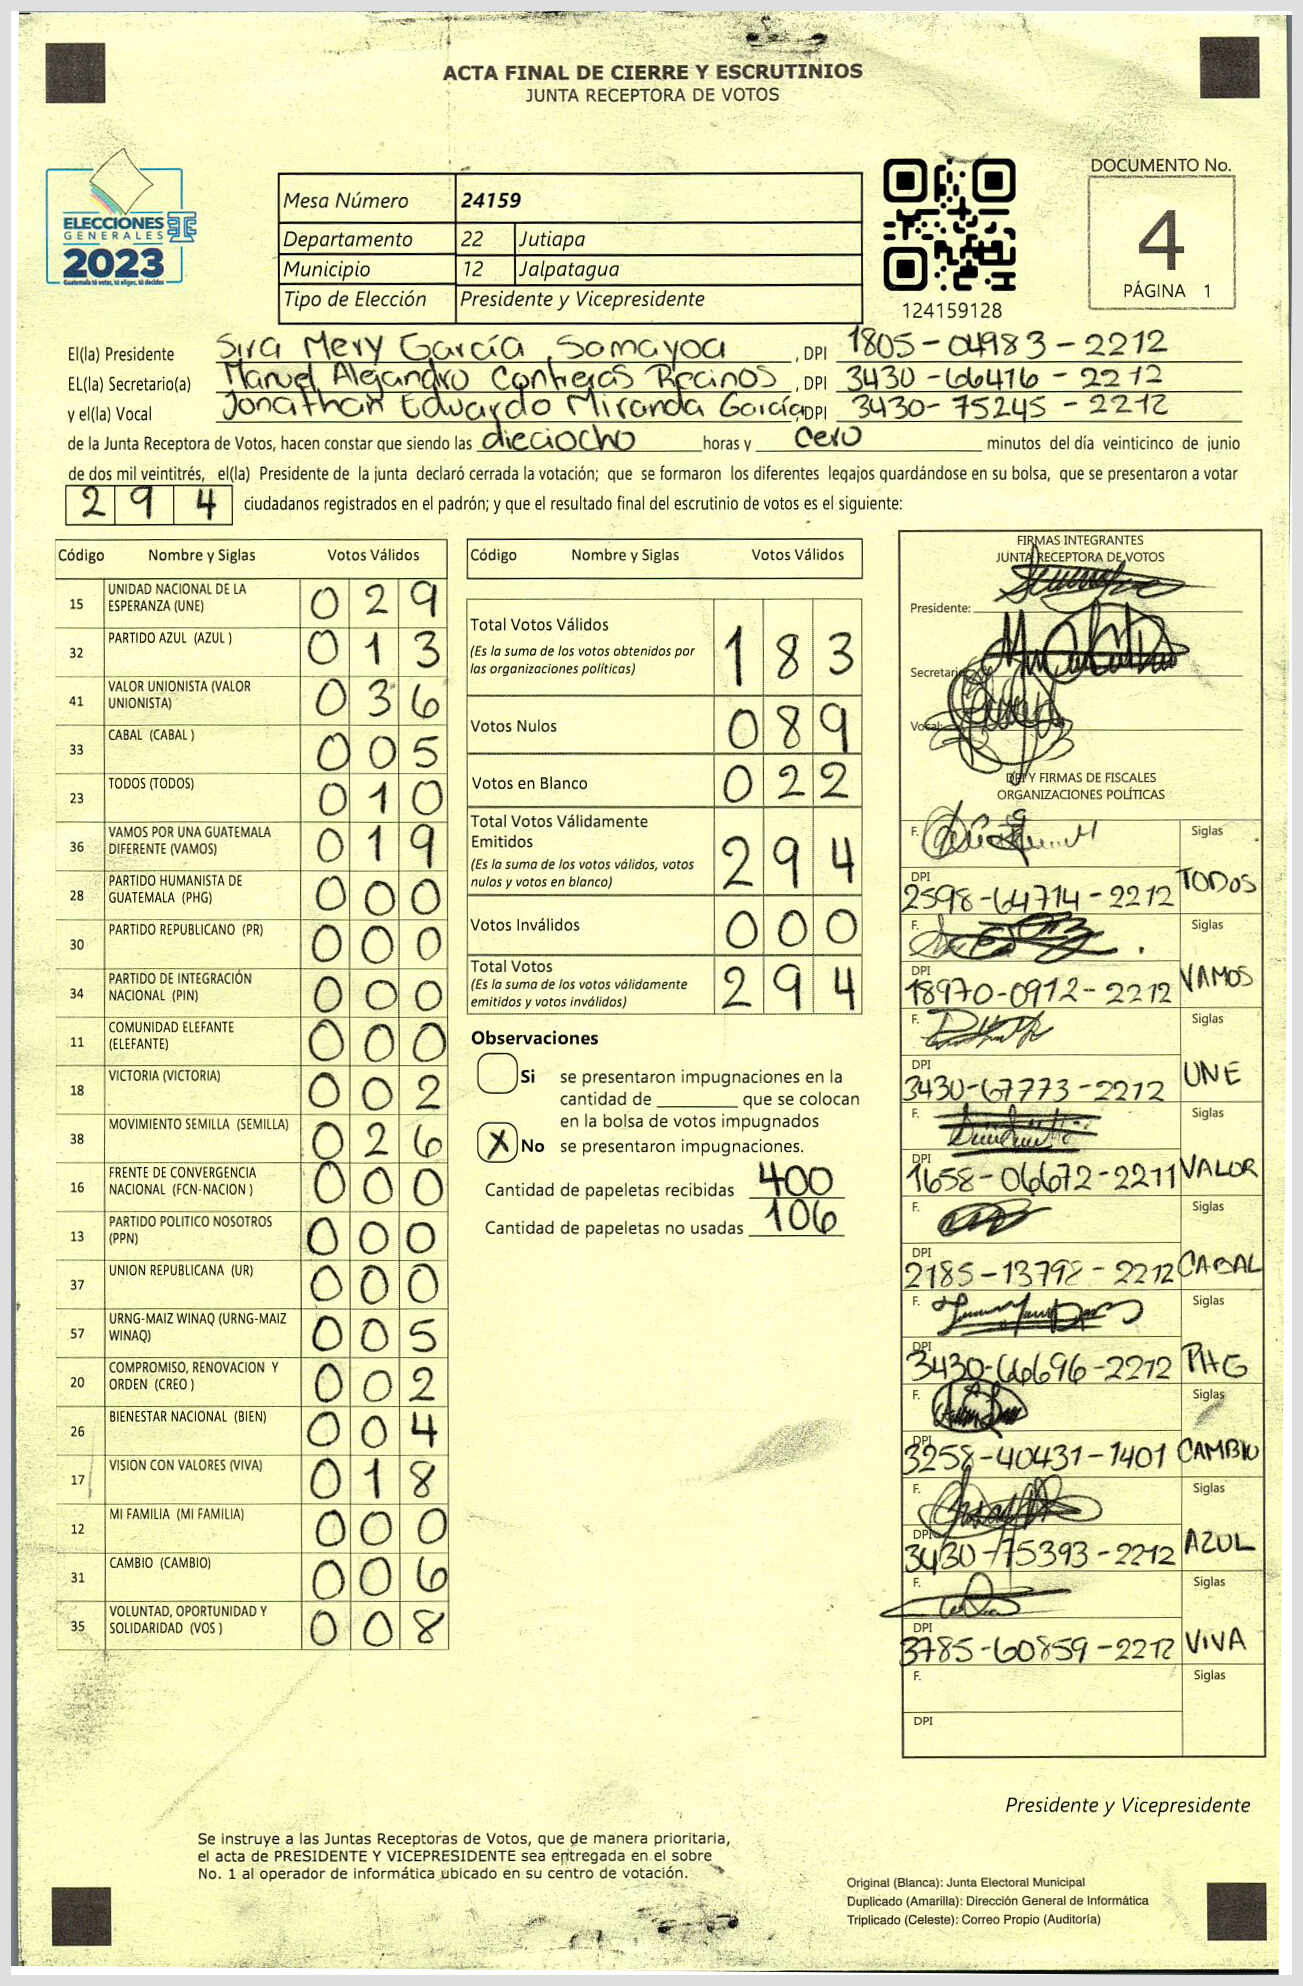 ACTA FINAL DE CIERRE Y ESCRUTINIOS
JUNTA RECEPTORA DE VOTOS
ELECCIONES
GENERALES
2023
Guatemala tú votas, tú eliges, tú decides
Mesa Número 24159
Departamento 22 Jutiapa
Municipio 12 Jalpatagua
Tipo de Elección Presidente y Vicepresidente
124159128
DOCUMENTO No.
4
PÁGINA 1
El(la) Presidente Sira Mery García Samayoa, DPI 1805-04983-2212
EL(la) Secretario(a) Manuel Alejandro Contreras Recinos, DPI 3430-66476-2212
y el(la) Vocal Jonathan Eduardo Miranda García, DPI 3430-75245-2212
de la Junta Receptora de Votos, hacen constar que siendo las dieciocho horas y cero minutos del día veinticinco de junio
de dos mil veintitrés, el(la) Presidente de la junta declaró cerrada la votación; que se formaron los diferentes legajos quardándose en su bolsa, que se presentaron a votar
294 ciudadanos registrados en el padrón; y que el resultado final del escrutinio de votos es el siguiente:
Código Nombre y Siglas Votos Válidos
15 UNIDAD NACIONAL DE LA ESPERANZA (UNE) 029
32 PARTIDO AZUL (AZUL ) 013
41 VALOR UNIONISTA (VALOR UNIONISTA) 036
33 CABAL (CABAL ) 005
23 TODOS (TODOS) 010
36 VAMOS POR UNA GUATEMALA DIFERENTE (VAMOS) 019
28 PARTIDO HUMANISTA DE GUATEMALA (PHG) 000
30 PARTIDO REPUBLICANO (PR) 000
34 PARTIDO DE INTEGRACIÓN NACIONAL (PIN) 000
11 COMUNIDAD ELEFANTE (ELEFANTE) 000
18 VICTORIA (VICTORIA) 002
38 MOVIMIENTO SEMILLA (SEMILLA) 026
16 FRENTE DE CONVERGENCIA NACIONAL (FCN-NACION ) 000
13 PARTIDO POLITICO NOSOTROS (PPN) 000
37 UNION REPUBLICANA (UR) 000
57 URNG-MAIZ WINAQ (URNG-MAIZ WINAQ) 005
20 COMPROMISO, RENOVACION Y ORDEN (CREO ) 002
26 BIENESTAR NACIONAL (BIEN) 004
17 VISION CON VALORES (VIVA) 018
12 MI FAMILIA (MI FAMILIA) 000
31 CAMBIO (CAMBIO) 006
35 VOLUNTAD, OPORTUNIDAD Y SOLIDARIDAD (VOS ) 008
Código Nombre y Siglas Votos Válidos
Total Votos Válidos 183
(Es la suma de los votos obtenidos por
las organizaciones políticas)
Votos Nulos 089
Votos en Blanco 022
Total Votos Válidamente
Emitidos 294
(Es la suma de los votos válidos, votos
nulos y votos en blanco)
Votos Inválidos 000
Total Votos 294
(Es la suma de los votos válidamente
emitidos y votos inválidos)
Observaciones
Si se presentaron impugnaciones en la
cantidad de ________ que se colocan
en la bolsa de votos impugnados
X No se presentaron impugnaciones.
Cantidad de papeletas recibidas 400
Cantidad de papeletas no usadas 106
FIRMAS INTEGRANTES
JUNTA RECEPTORA DE VOTOS
Presidente:
Secretario
Vocal:
DPI Y FIRMAS DE FISCALES
ORGANIZACIONES POLÍTICAS
F. Siglas
DPI
2598-64714-2212 TODOS
F. Siglas
DPI
18970-0912-2212 VAMOS
F. Siglas
DPI
3430-67773-2212 UNE
F. Siglas
DPI
1658-06672-2211 VALOR
F. Siglas
DPI
2185-13798-2212 CABAL
F. Siglas
DPI
3430-66696-2212 PHG
F. Siglas
DPI
3258-40431-1401 CAMBIO
F. Siglas
DPI
3430-75393-2212 AZUL
F. Siglas
DPI
3785-60859-2212 VIVA
F. Siglas
DPI
Presidente y Vicepresidente
Se instruye a las Juntas Receptoras de Votos, que de manera prioritaria,
el acta de PRESIDENTE Y VICEPRESIDENTE sea entregada en el sobre
No. 1 al operador de informática ubicado en su centro de votación.
Original (Blanca): Junta Electoral Municipal
Duplicado (Amarilla): Dirección General de Informática
Triplicado (Celeste): Correo Propio (Auditoría)